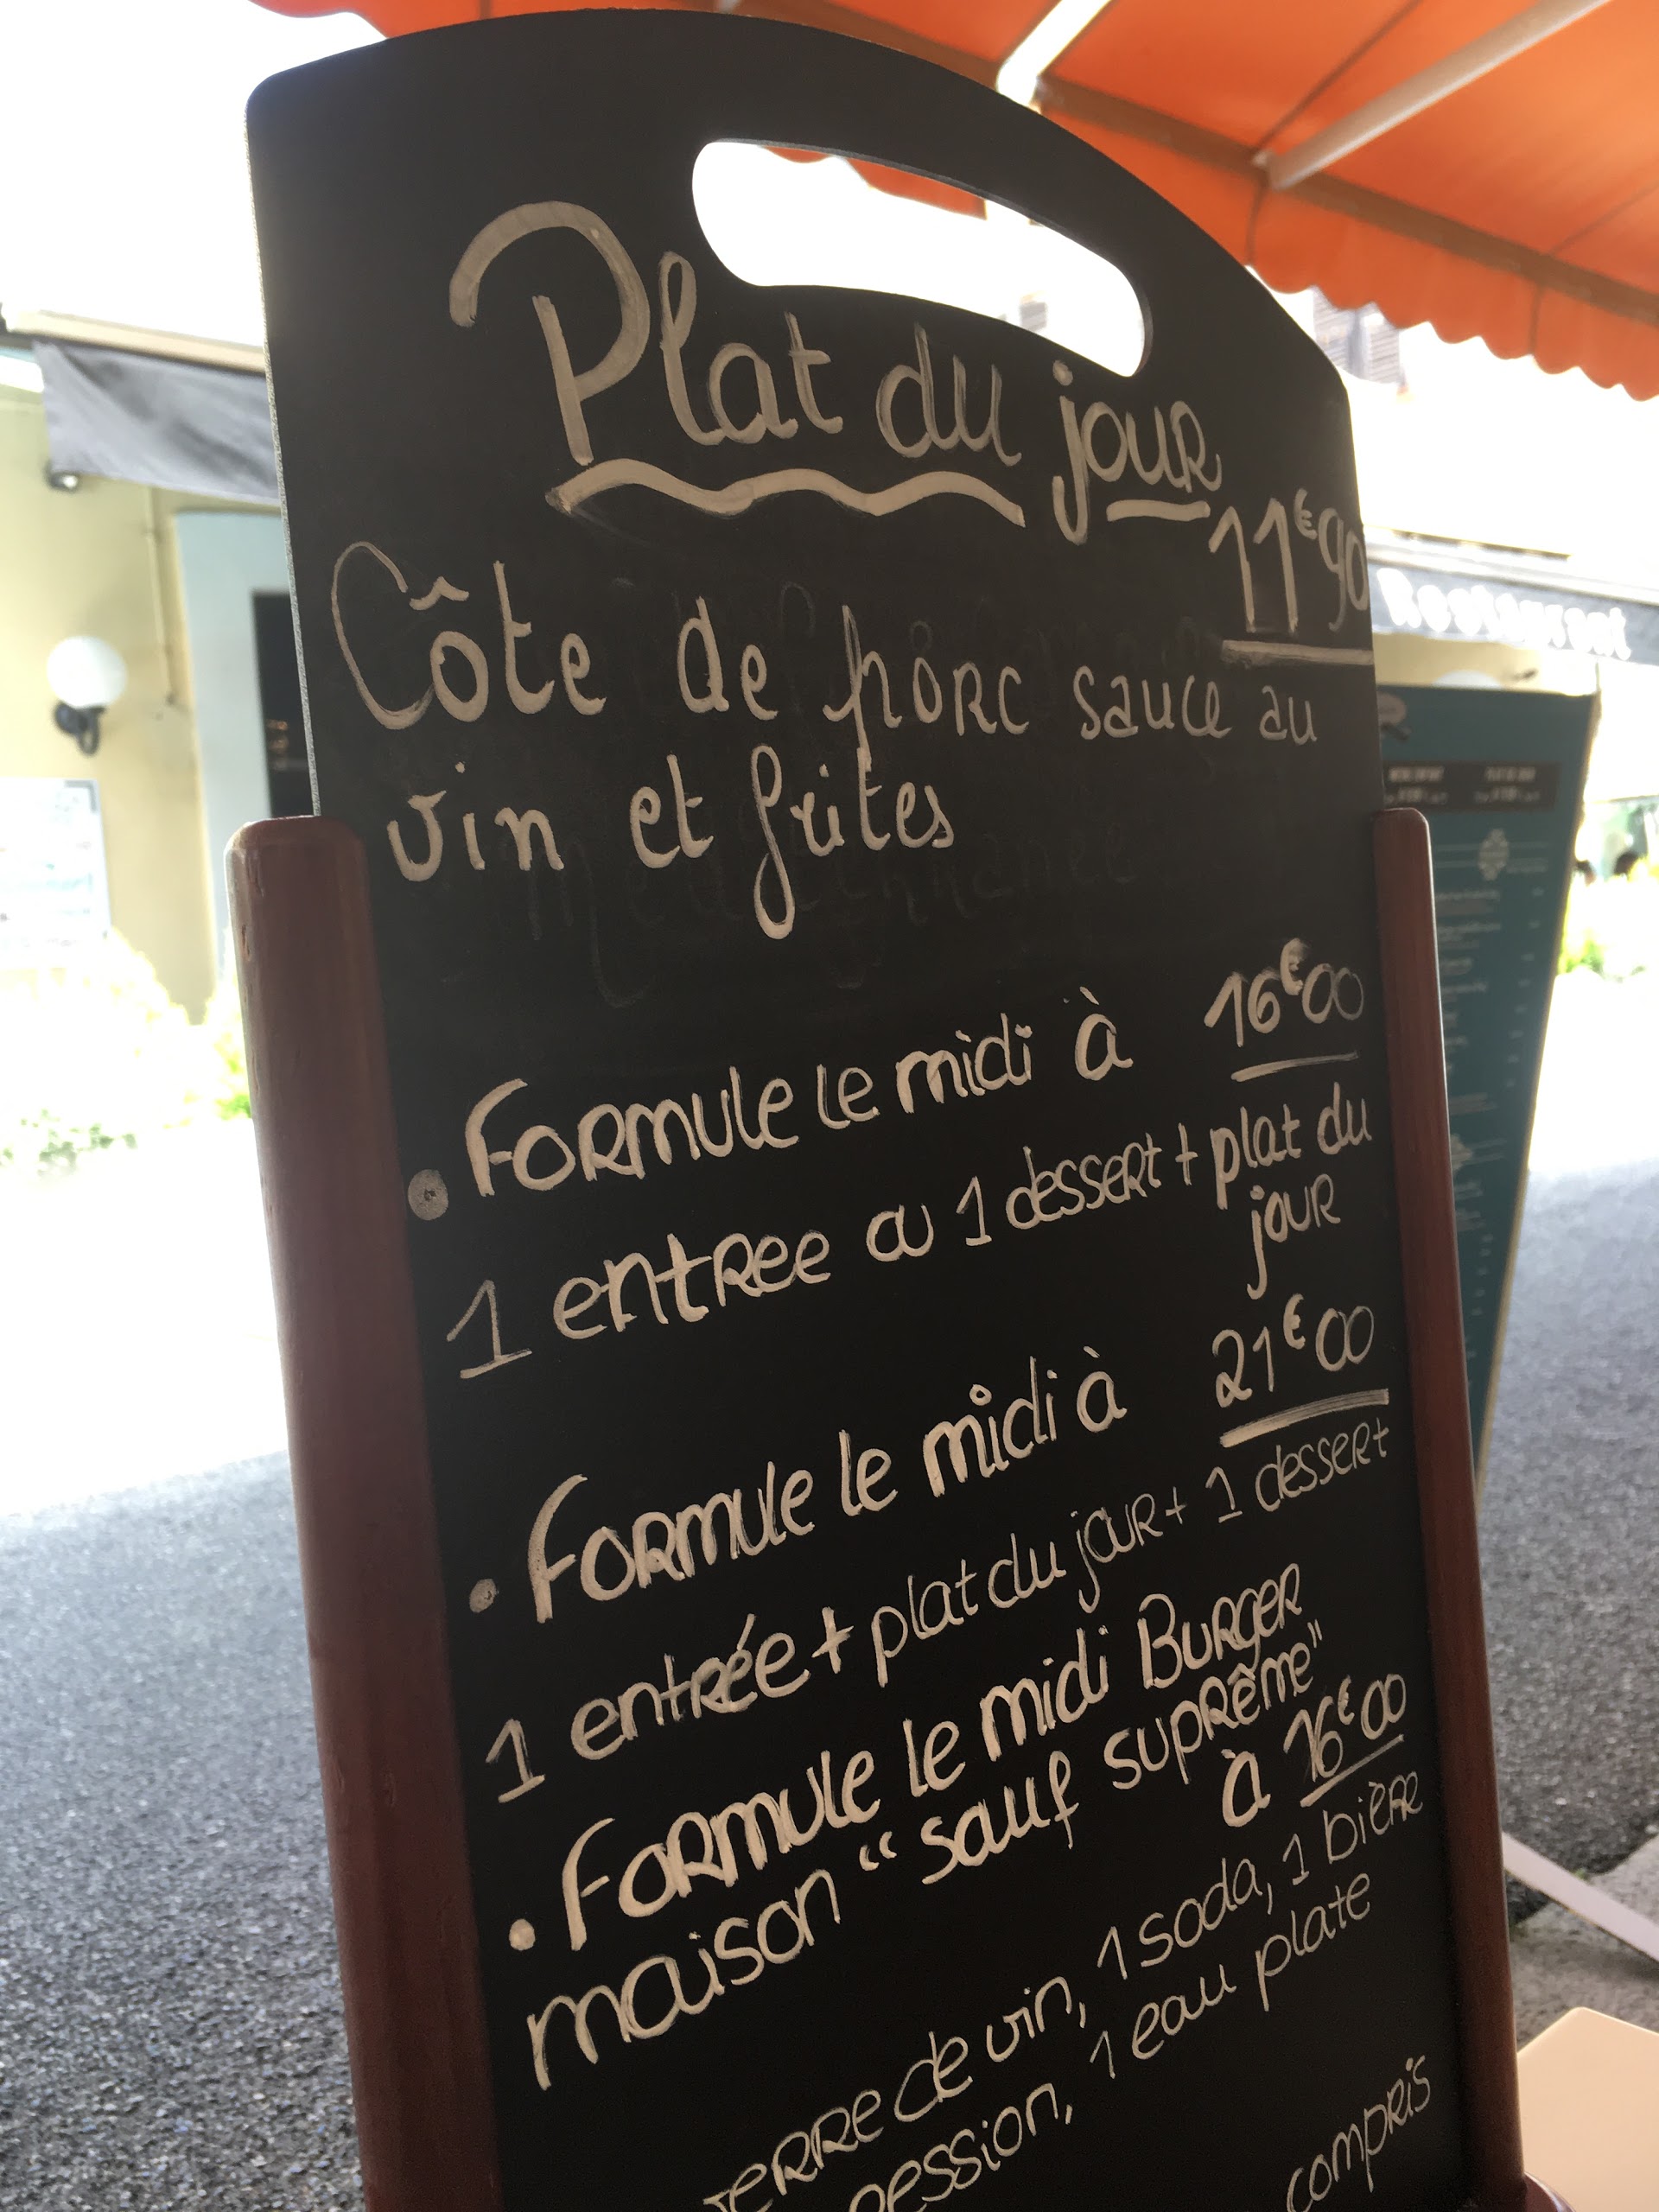 Plat du jour
11€90
Côte de porc sauce au
vin et frites
• Formule le midi à 16€00
1 entree ou 1 dessert + plat du
jour
• Formule le midi à 21€00
1 entrée + plat du jour + 1 dessert
• Formule le midi Burger
maison "sauf suprême"
à 16€00
verre de vin, 1 soda, 1 bière
pession, 1 eau plate
compris
Restaurant